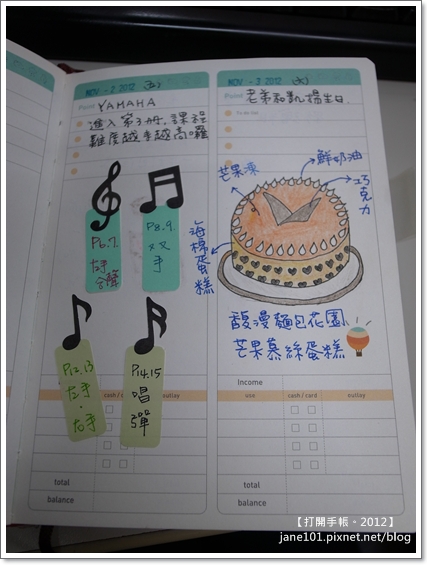 NOV - 2 2012 (五)
Point YAMAHA
進入第3冊,課程
難度越來越高囉
P6.7.
左手
合聲
P8.9.
双手
P12.13
左手.
右手
P14.15
唱
彈
cash / card
outlay
total
balance
NOV - 3 2012 (六)
Point 老弟和凱揚生日
To do list
芒果凍
鮮奶油
巧克力
海棉蛋糕
馥漫麵包花園
芒果慕絲蛋糕
Income
use
cash / card
outlay
total
balance
【打開手帳。2012】
jane101.pixnet.net/blog